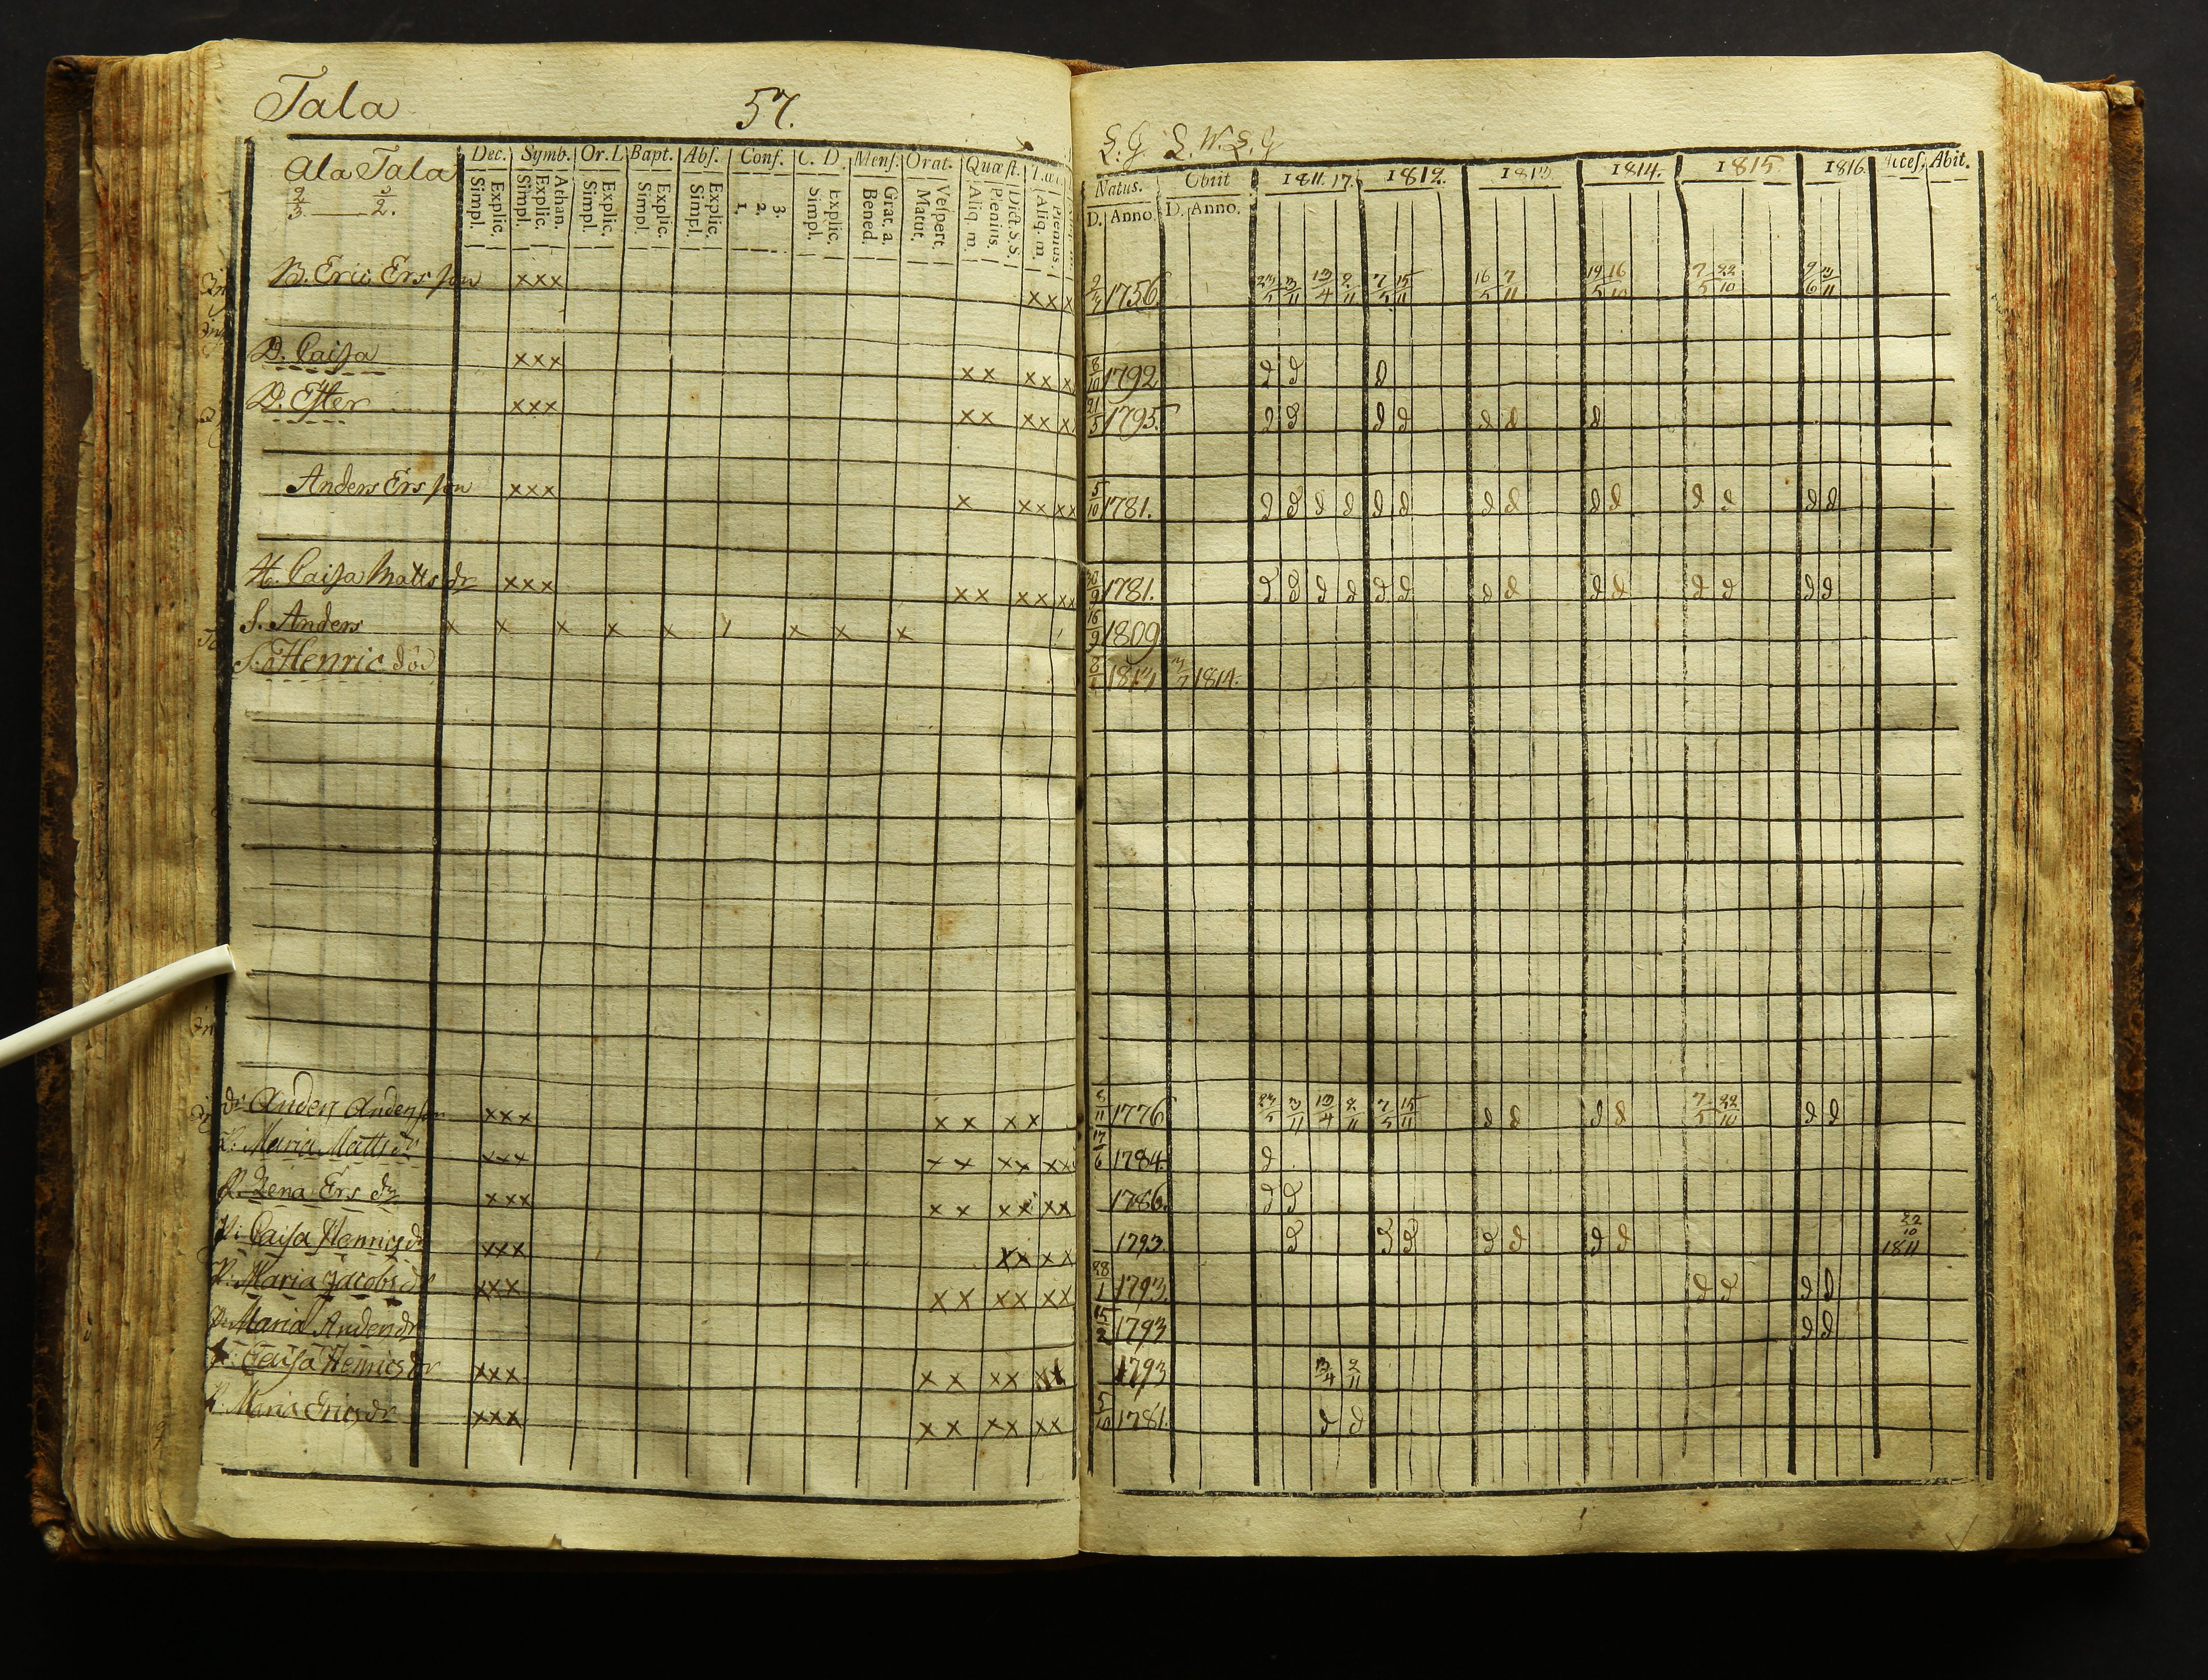 Tala 57.
L.G L.W.L.G
Ala Tala
2/3 3/2.
Dec. Symb. Or. L Bapt. Abs. Conf. C. D. Mens. Orat. Quæst.
Simpl. Explic. Simpl. Explic. Athan. Simpl. Explic. Simpl. Explic. Simpl. Explic. 1. 2. 3. Simpl. Explic. Bened. Grat. a. Matut. Vespert. Aliq. m. Plenius. Dict. S. S. Aliq. m. Plenius.
Natus. Obiit 1811. 17. 1812. 1813 1814. 1815 1816 Acces. Abit.
D. Anno. D. Anno.
B. Eric Ersson xxx xxx 1756 23/5 3/11 13/4 2/11 7/5 15/11 16/5 7/11 14/5 16/10 7/5 22/10 9/6 3/11
D. Caisa xxx xx xx x 8/10 1792 d d d
D. Ester xxx xx xx x 21/5 1795. d d d d d d d
Anders Ersson xxx x xx xx 5/10 1781. d d d d d d d d d d d d d d
H. Caisa Matts dr xxx xx xx xx 30/9 1781. d d d d d d d d d d d d d d
S. Anders x x x x x x x x x 16/9 1809
S. Henric död 1813 3/7 1814.
dr Anders Andersson xxx xx xx 8/11 1776 23/5 3/11 13/4 2/11 7/5 15/11 d d d d 7/5 22/10 d d
Maria Matts dr xxx xx xx xx 17/6 1784. d
P. Lena Ers dr xxx xx xx xx 1786. d d
P: Caisa Henrics dr xxx xx xx 1793. d d d d d d d 22/10 1811
P: Maria Jacobs dr xxx xx xx xx 28/1 1793. d d d d
P. Maria Anders dr 15/2 1793 d d
P: Caisa Henrics dr xxx xx xx xx 1793 13/4 2/11
P. Maria Erics dr xxx xx xx xx 5/10 1781. d d